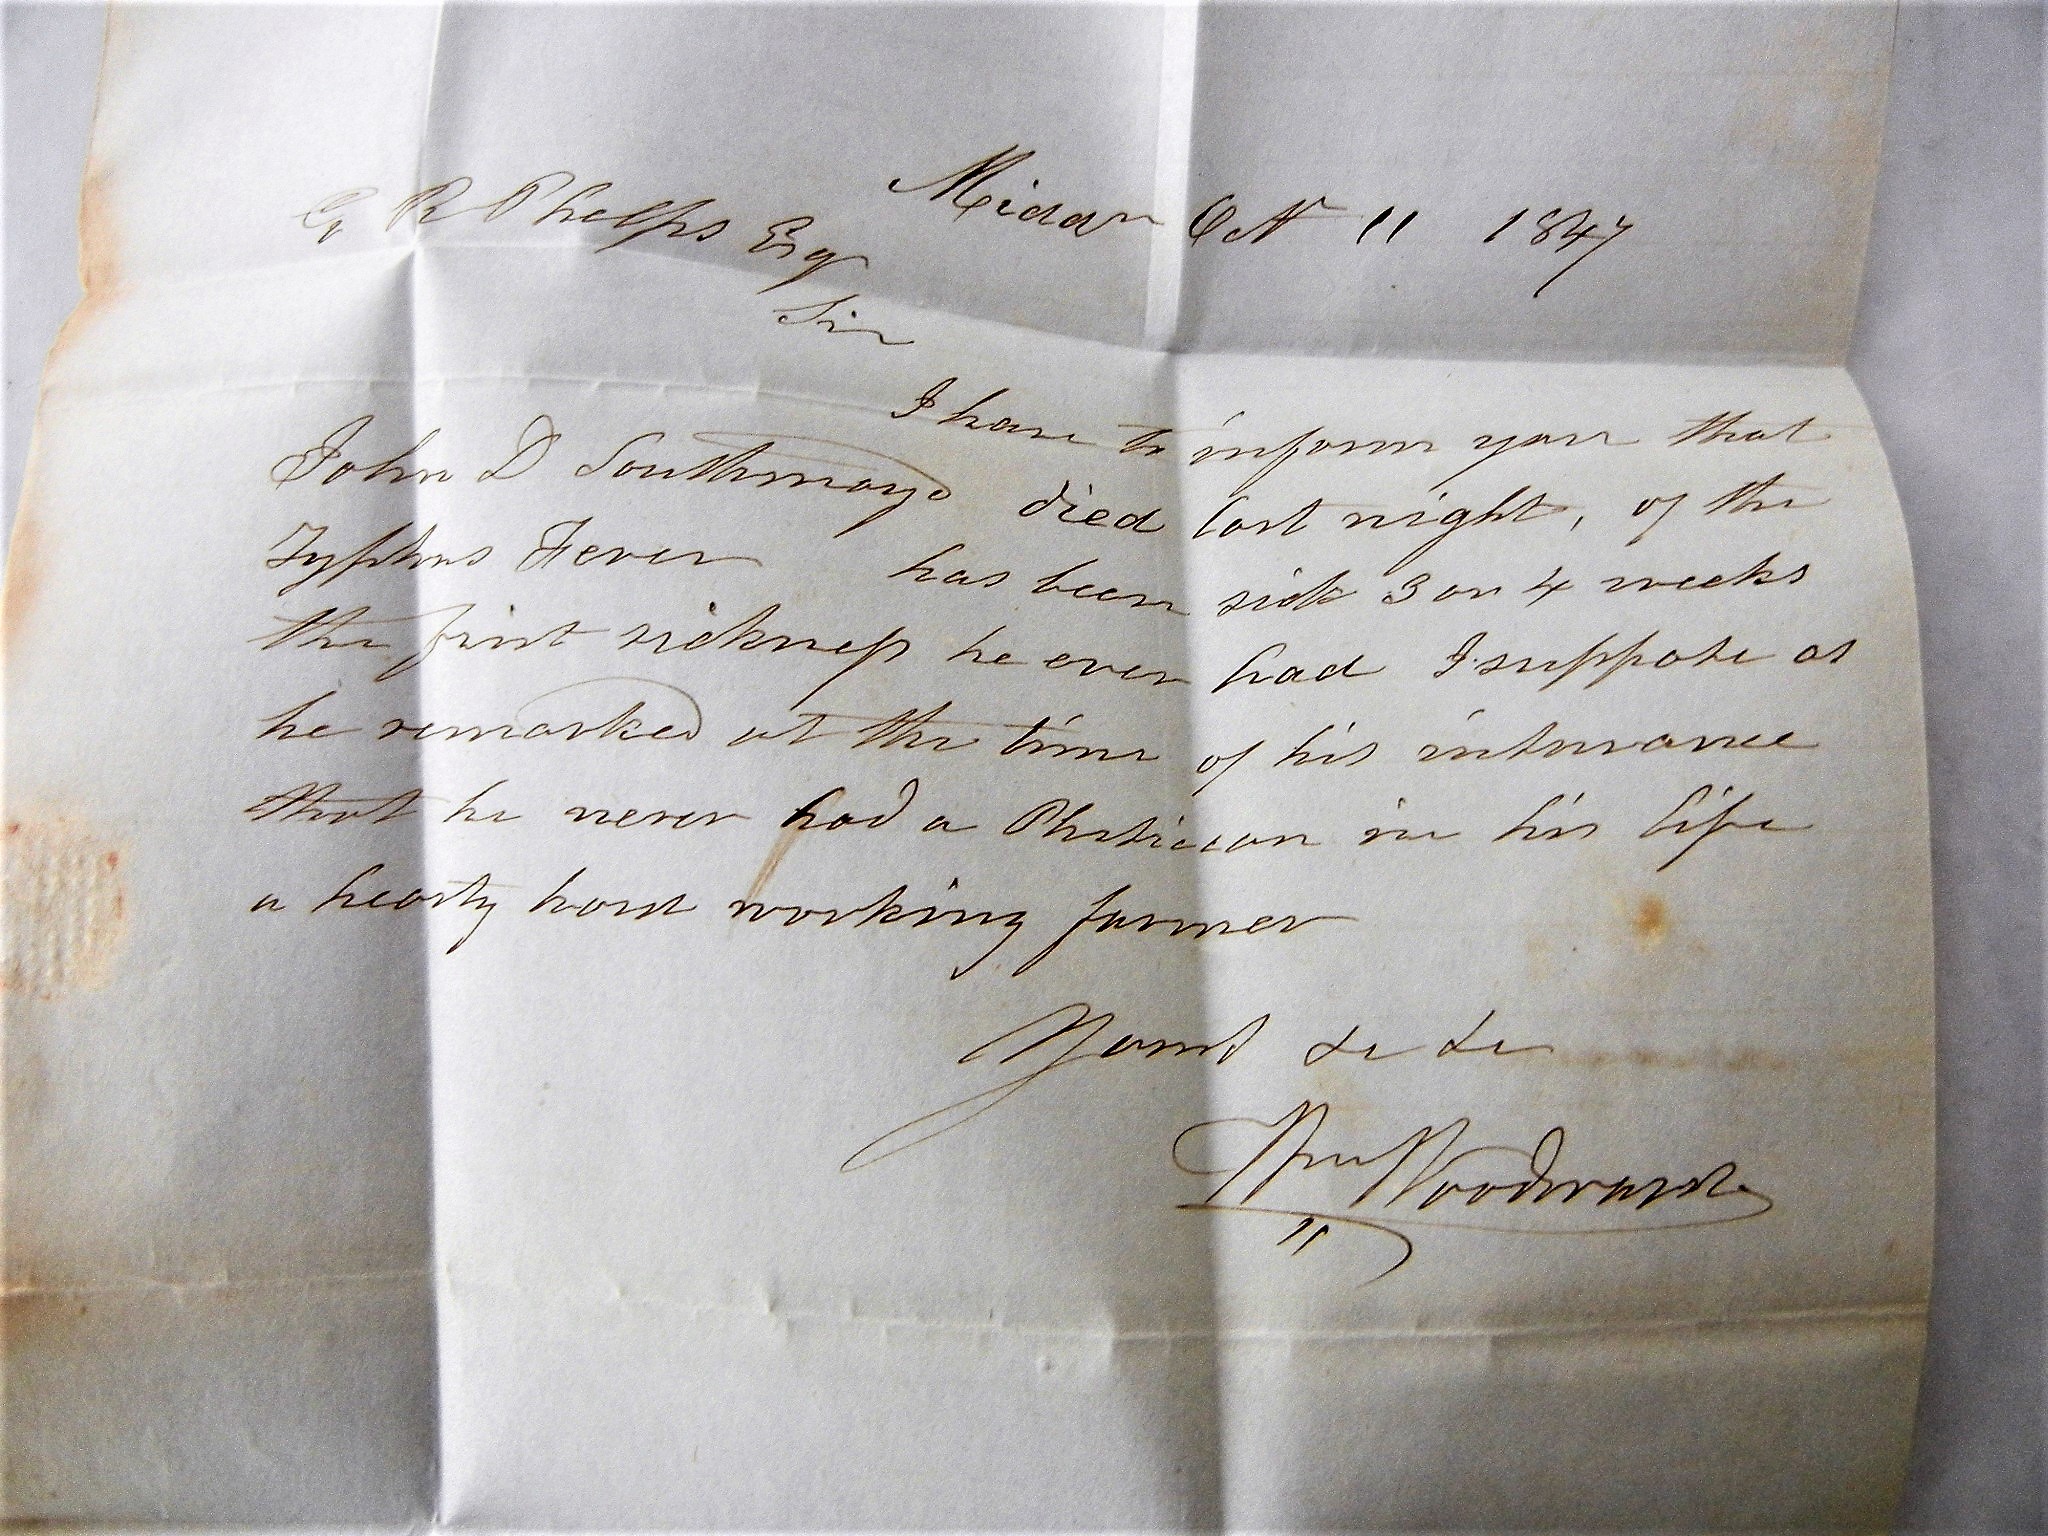 Middn Oct 11 1847
G R Phelps Esq
Sir
I have to inform you that
John D Southmayd died last night, of the
Typhus Fever has been sick 3 or 4 weeks
the first sickness he ever had I suppose as
he remarked at the time of his insurance
that he never had a Phisician in his life
a hearty hard working farmer
Yours &c &c
Wm Woodward